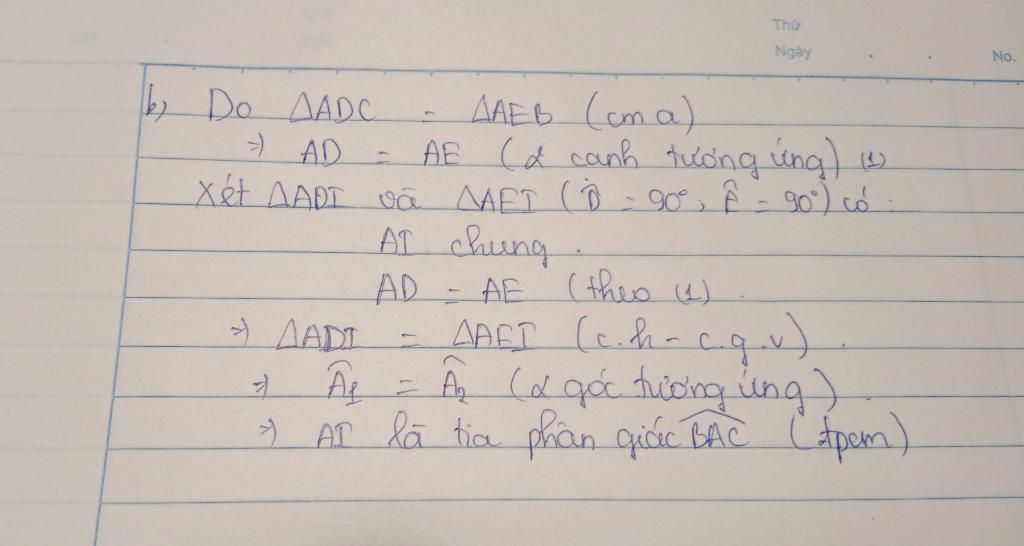 Thứ
Ngày . . No.
b) Do ΔADC = ΔAEB (cm a)
=> AD = AE (2 cạnh tương ứng) (1)
Xét ΔADI và ΔAEI (D̂ = 90°, Ê = 90°) có.
AI chung.
AD = AE (theo (1).
=> ΔADI = ΔAEI (c.h - c.g.v).
=> Â1 = Â2 (2 góc tương ứng)
=> AI là tia phân giác BAC (đpcm)